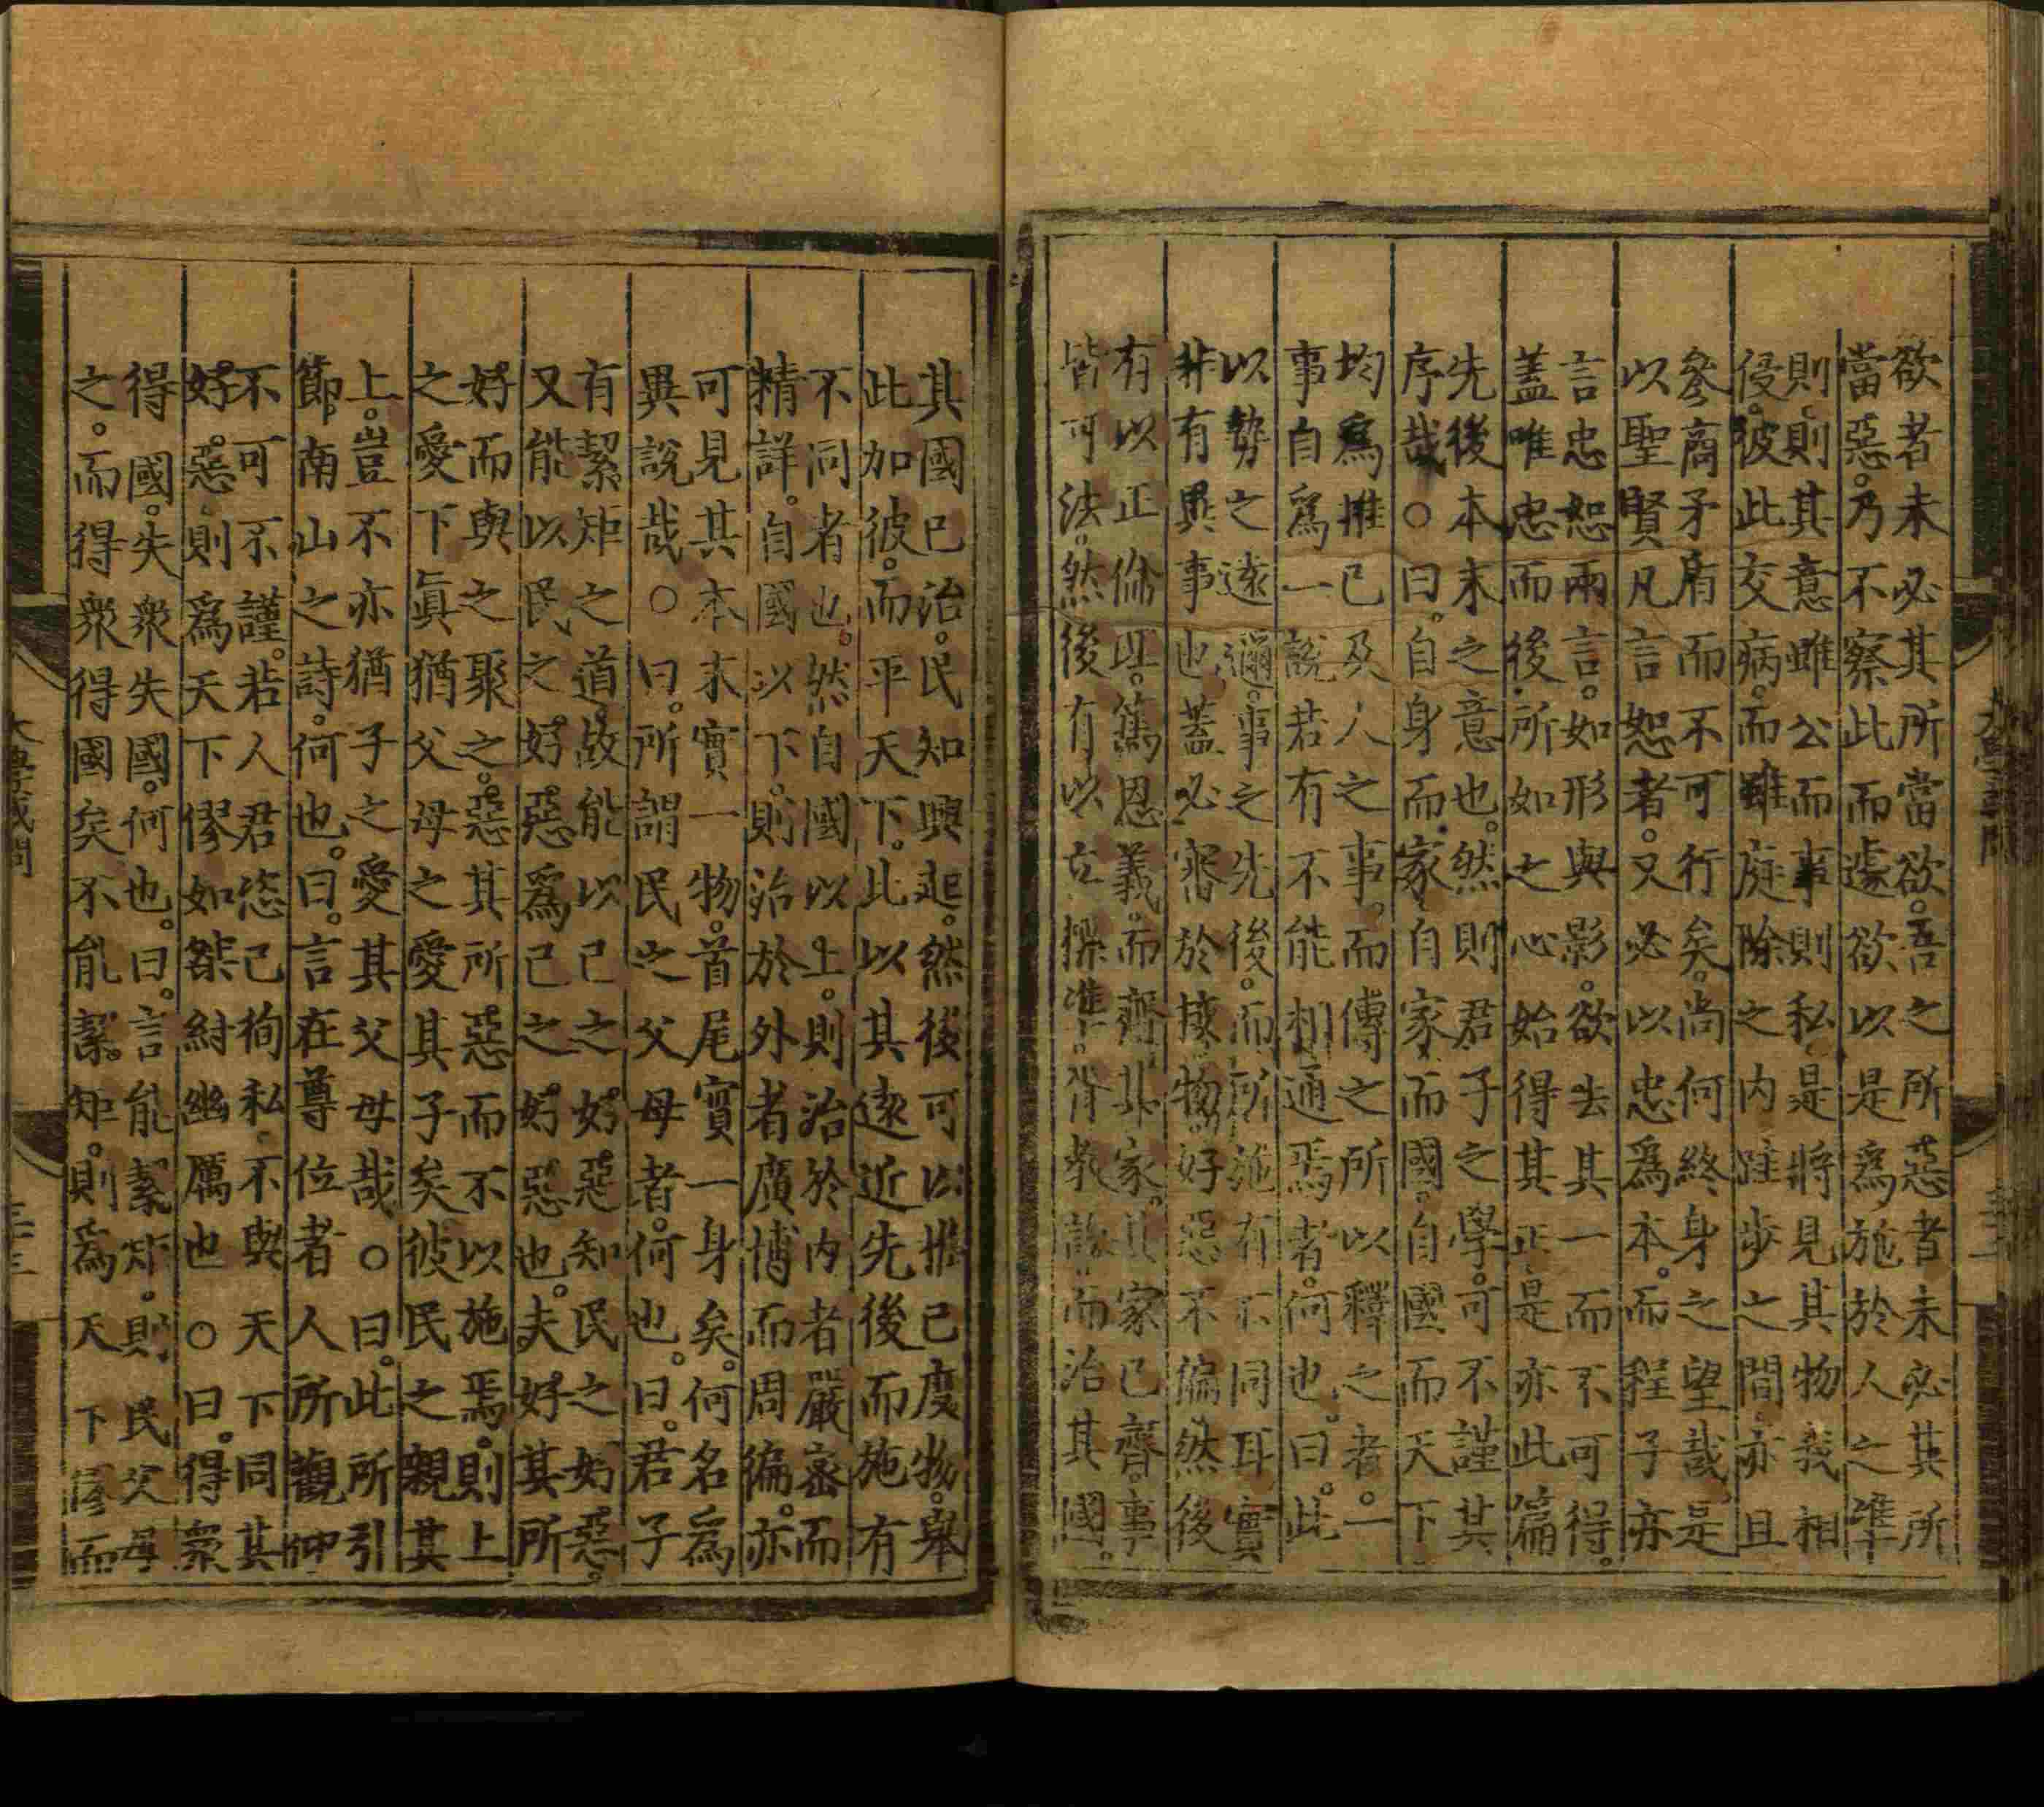 欲者未必其所當欲。吾之所惡者未必其所
當惡。乃不察此而遽欲以是爲施於人之準
則。則其意雖公而事則私。是將見其物我相
侵。彼此交病。而雖庭除之内跬步之間亦且
參商矛盾而不可行矣。尚何終身之望哉。是
以聖賢凡言恕者。又必以忠爲本。而程子亦
言忠恕兩言。如形與影。欲去其一而不可得。
蓋唯忠而後所如之心始得其正。是亦此篇
先後本末之意也。然則君子之學。可不謹其
序哉○曰。自身而家。自家而國。自國而天下
均爲推己及人之事。而傳之所以釋之者。一
事自爲一說若有不能相通焉者。何也。曰。此
以勢之遠邇。事之先後。而所施有不同耳實
非有異事也。蓋必審於接物好惡不偏然後
有以正倫理。篤恩義。而齊其家。其家已齊。事
皆可法。然後有以立標準。胥教誨。而治其國。
其國已治。民知興起。然後可以推己度物。舉
此加彼。而平天下。此以其遠近先後而施有
不同者也。然自國以上。則治於內者嚴密而
精詳。自國以下。則治於外者廣博而周徧。亦
可見其本末實一物。首尾實一身矣。何名爲
異說哉○曰。所謂民之父母者。何也。曰。君子
有絜矩之道。故能以己之好惡知民之好惡。
又能以民之好惡爲己之好惡也。夫好其所
好而與之聚之。惡其所惡而不以施焉。則上
之愛下眞猶父母之愛其子矣彼民之親其
上。豈不亦猶子之愛其父母哉○曰。此所引
節南山之詩。何也。曰。言在尊位者人所觀仰
不可不謹。若人君恣己徇私。不與天下同其
好惡。則爲天下僇如桀紂幽厲也○曰。得衆
得國。失衆失國。何也。曰。言能絜矩。則民父母
之。而得衆得國矣不能絜矩。則爲天下僇而